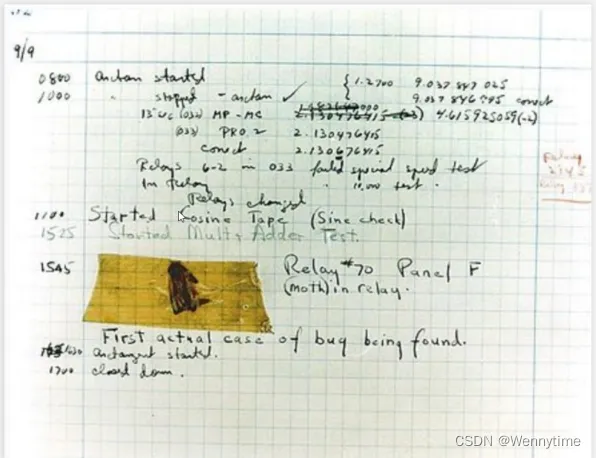 9/9
0800 antan started
1000 " stopped - antan ✓ { 1.2700 9.037 847 025
9.037 846 995 correct
13"uc (032) MP-MC 2.130476415 (-3) 4.615925059(-2)
(033) PRO.2 2.130476415
correct 2.130676415
Relays 6-2 in 033 failed special speed test
In Relay " 10,000 test.
Relays changed
1100 Started Cosine Tape (Sine check)
1525 Started Mult+Adder Test.
1545 Relay #70 Panel F
(moth) in relay.
First actual case of bug being found.
1630 antangent started.
1700 closed down.
Relay
2145
Relay
CSDN @Wennytime